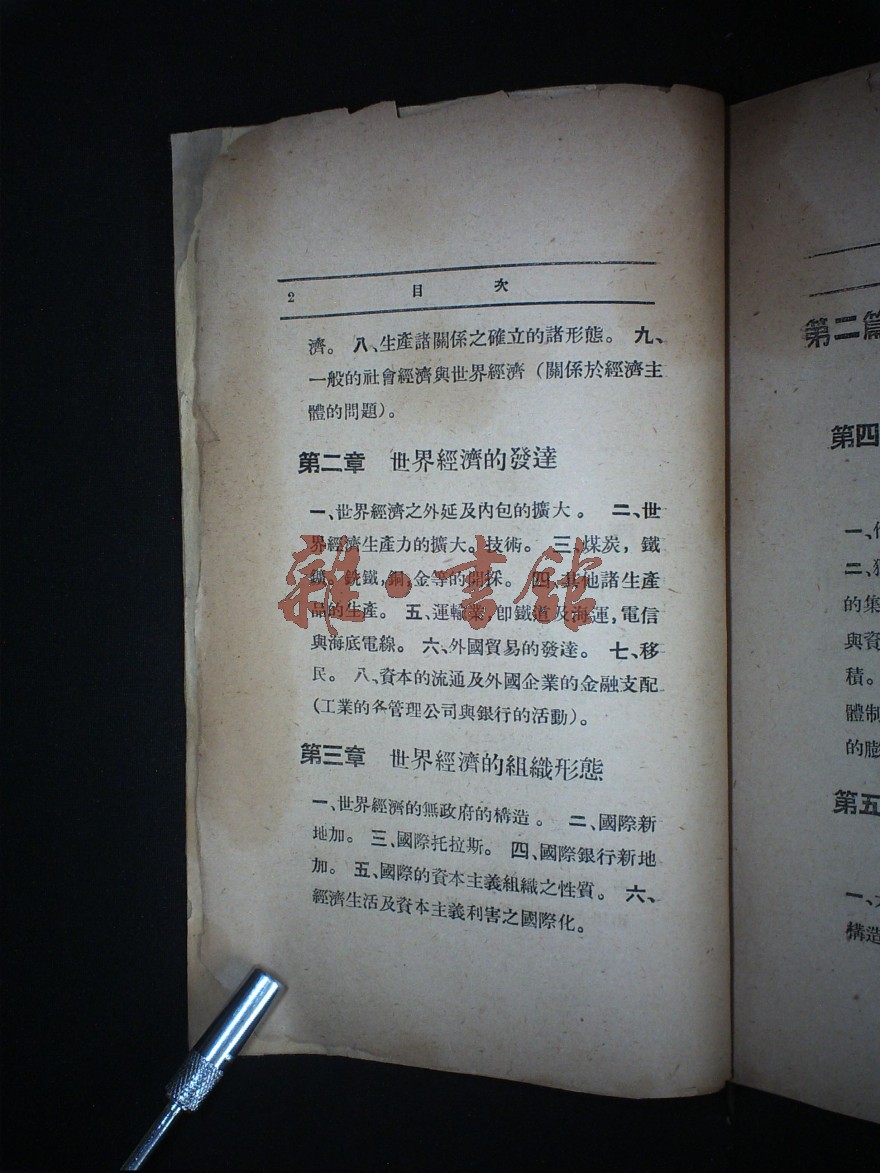 2 目 次
濟。 八、生產諸關係之確立的諸形態。 九、
一般的社會經濟與世界經濟（關係於經濟主
體的問題）。
第二章 世界經濟的發達
一、世界經濟之外延及內包的擴大。 二、世
界經濟生產力的擴大。技術。 三、煤炭，鐵
鑛。銑鐵，銅，金等的開採。 四、其他諸生產
品的生產。 五、運輸業，卽鐵道及海運，電信
與海底電線。 六、外國貿易的發達。 七、移
民。 八、資本的流通及外國企業的金融支配
（工業的各管理公司與銀行的活動）。
第三章 世界經濟的組織形態
一、世界經濟的無政府的構造。 二、國際新
地加。 三、國際托拉斯。 四、國際銀行新地
加。 五、國際的資本主義組織之性質。 六、
經濟生活及資本主義利害之國際化。
雜·書館
第二篇
第四
一、
二、
的集
與資
積。
體制
的膨
第五
一、
構造